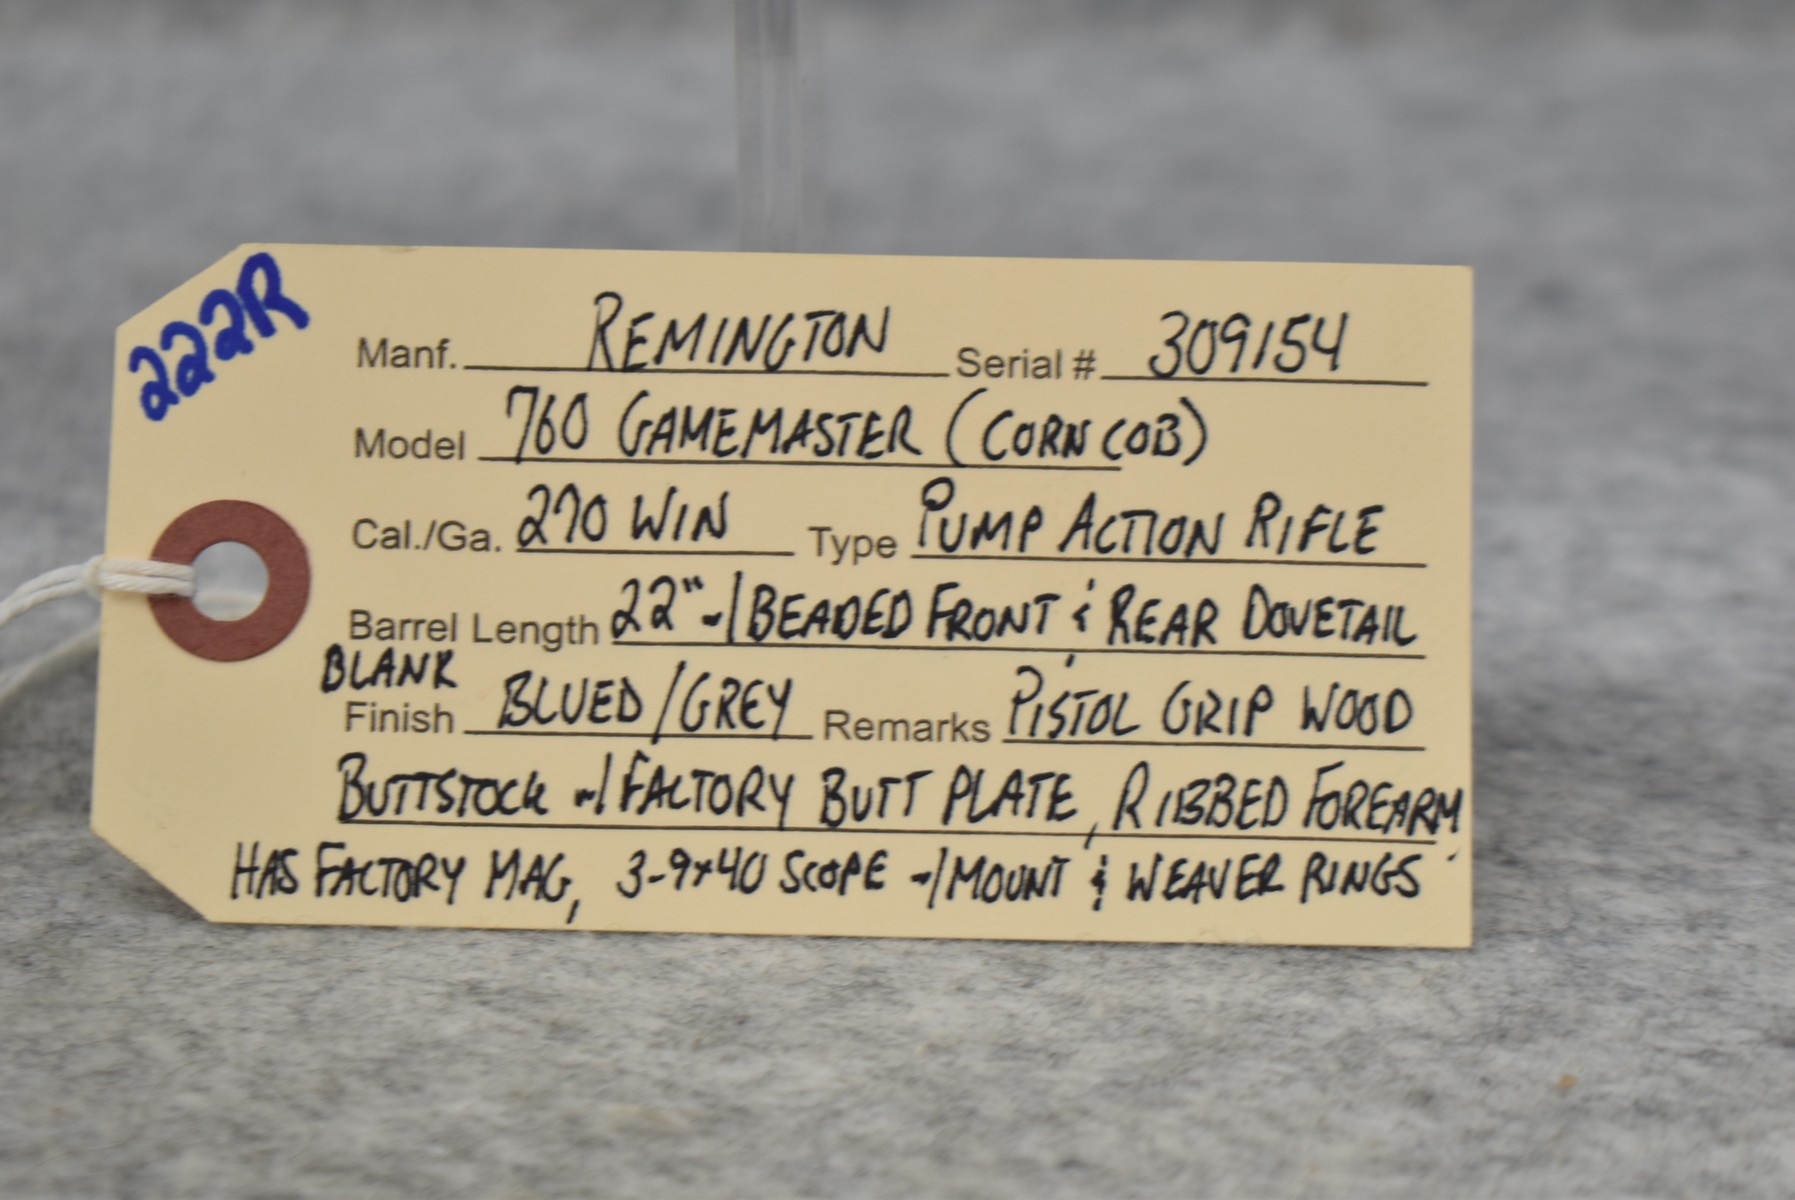 222R
Manf. REMINGTON Serial # 309154
Model 760 GAMEMASTER (CORN COB)
Cal./Ga. 270 WIN Type PUMP ACTION RIFLE
Barrel Length 22" w/ BEADED FRONT & REAR DOVETAIL
BLANK
Finish BLUED/GREY Remarks PISTOL GRIP WOOD
BUTTSTOCK w/ FACTORY BUTT PLATE, RIBBED FOREARM
HAS FACTORY MAG, 3-9x40 SCOPE w/ MOUNT & WEAVER RINGS